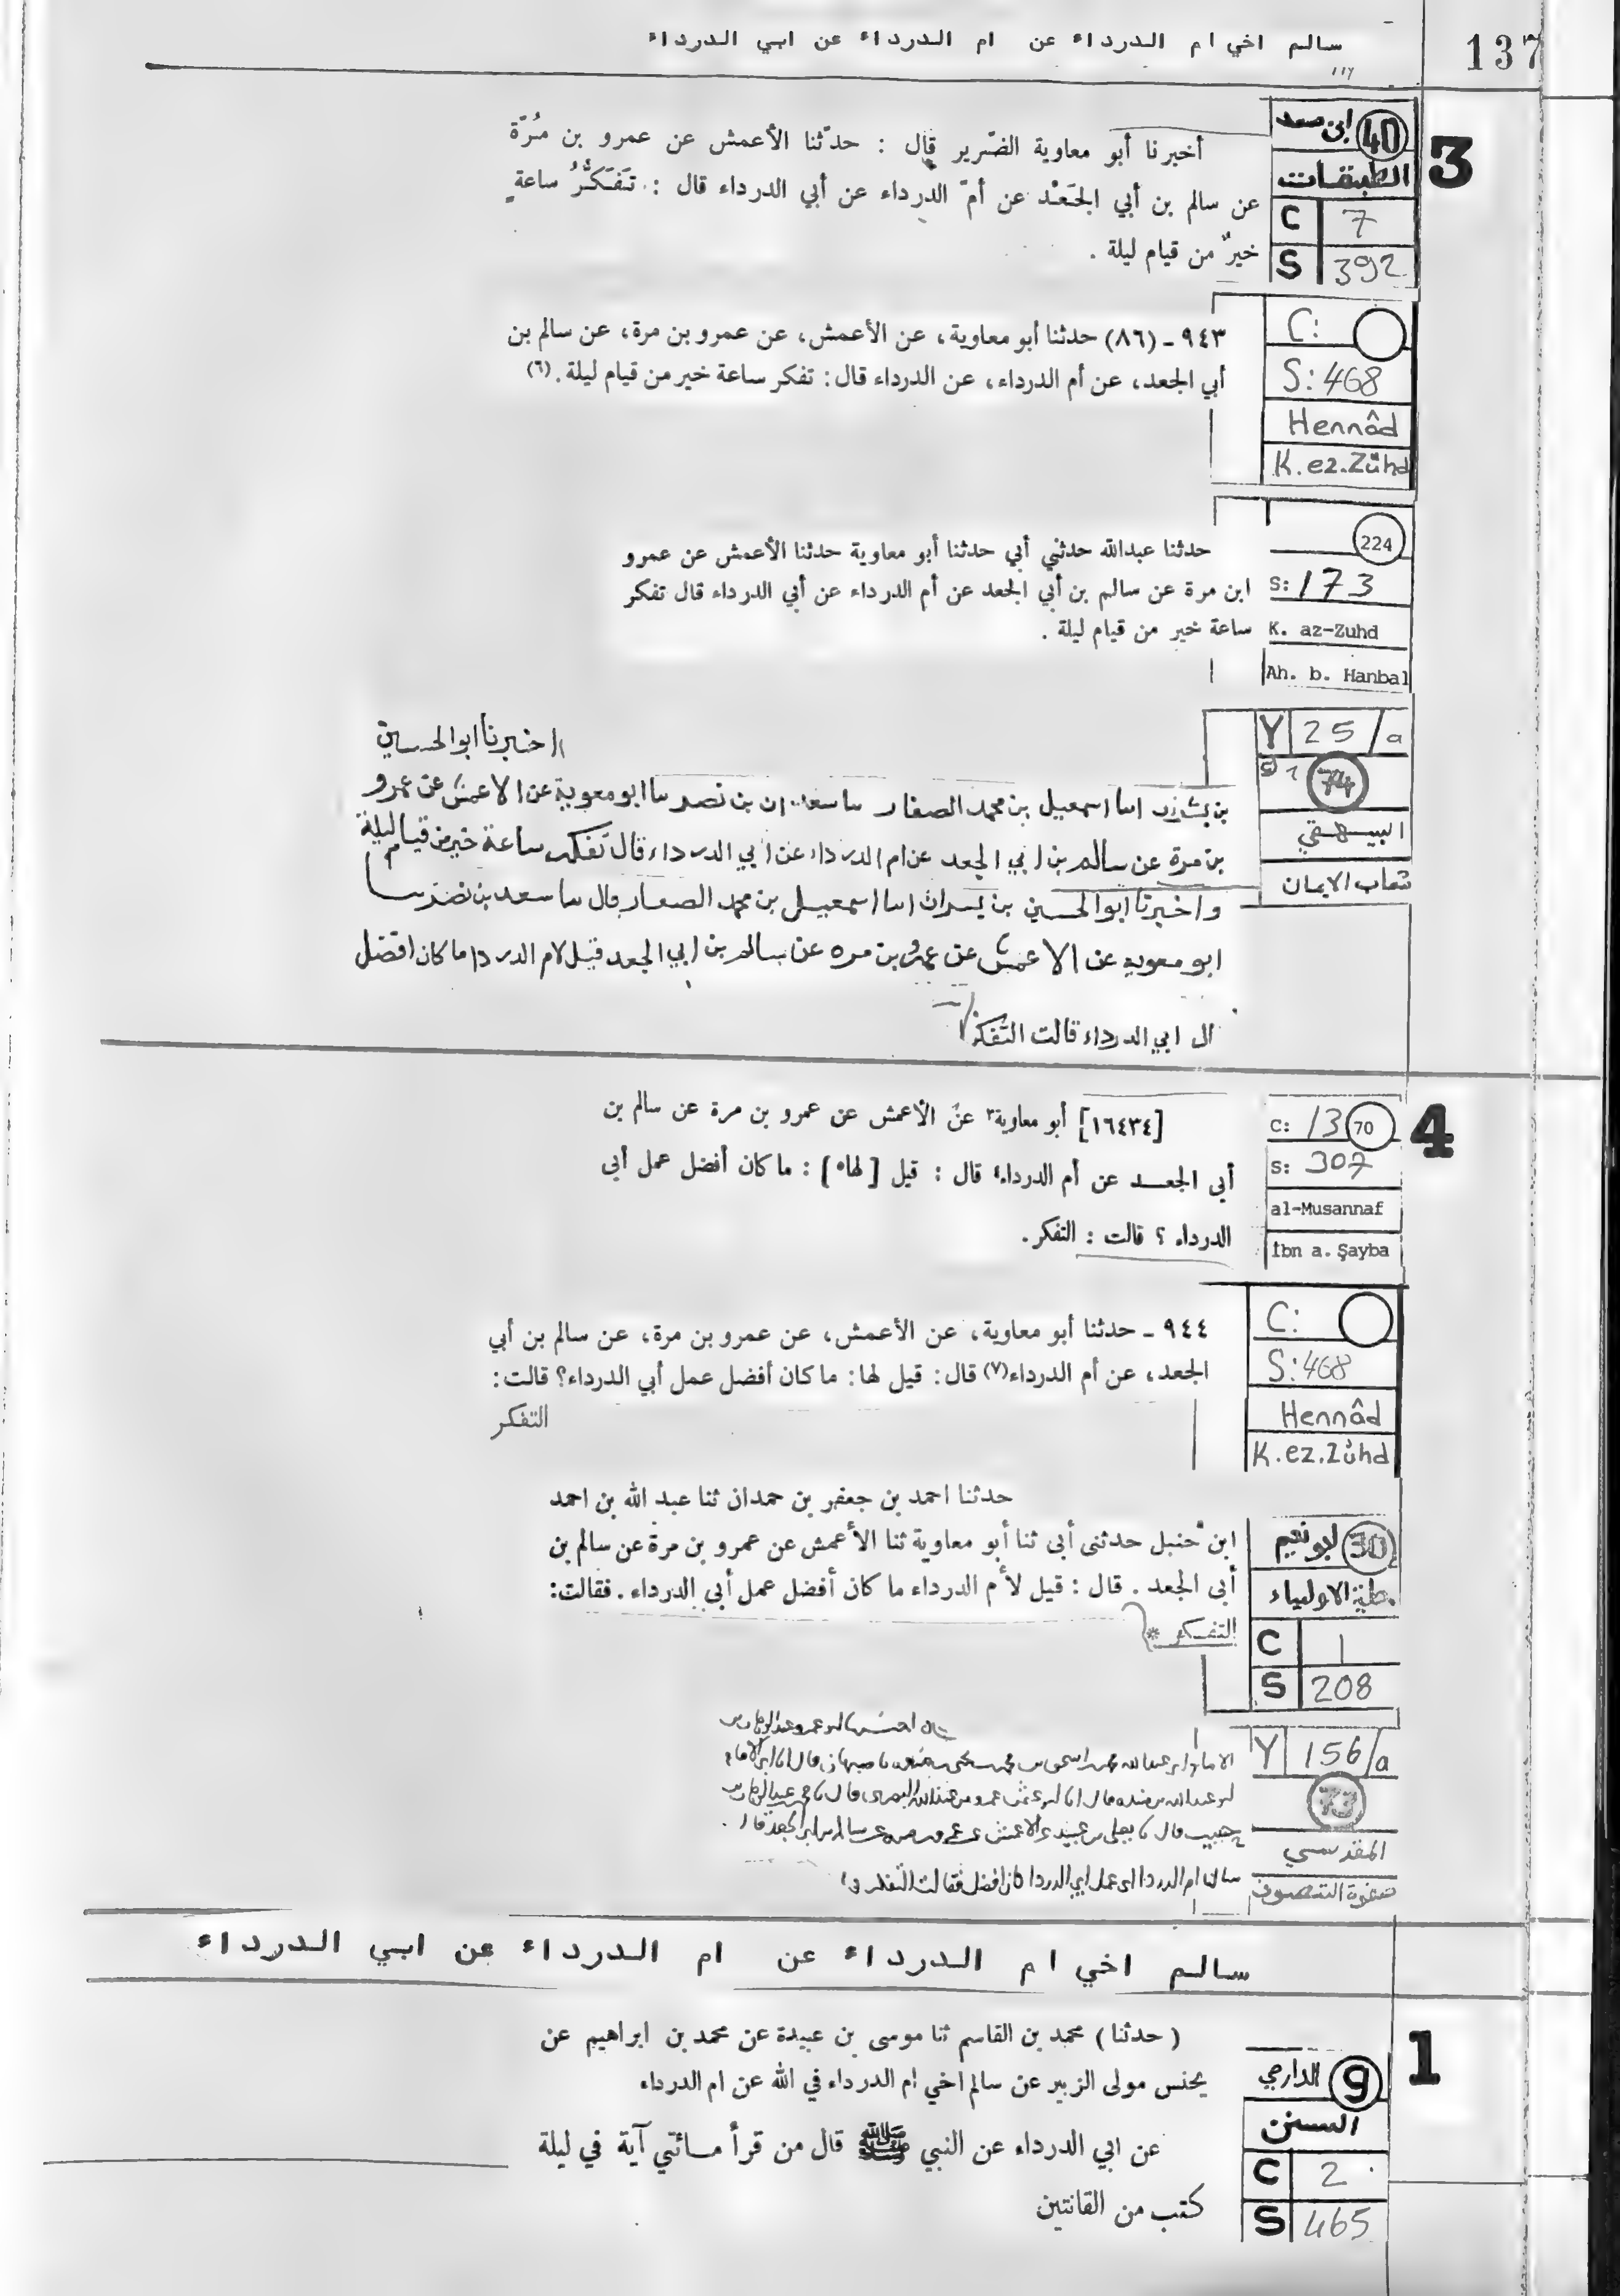 سالم اخي ام الدرداء عن ام الدرداء عن ابي الدرداء
137
3
ابن سعد 40
الطبقات
C 7
S 392
أخبرنا أبو معاوية الضّرير قال : حدّثنا الأعمش عن عمرو بن مُرّة
عن سالم بن أبي الجَعْد عن أمّ الدرداء عن أبي الدرداء قال : تَفَكّرُ ساعةٍ
خيرٌ من قيام ليلة .
C:
S: 468
Hennâd
K.ez.Zühd
٩٤٣ - (٨٦) حدثنا أبو معاوية، عن الأعمش، عن عمرو بن مرة، عن سالم بن
أبي الجعد، عن أم الدرداء، عن الدرداء قال: تفكر ساعة خير من قيام ليلة. (٦)
224
S: 173
K. az-Zuhd
Ah. b. Hanbal
حدثنا عبدالله حدثني أبي حدثنا أبو معاوية حدثنا الأعمش عن عمرو
ابن مرة عن سالم بن أبي الجعد عن أم الدرداء عن أبي الدرداء قال تفكر
ساعة خير من قيام ليلة .
Y 25/a
74
البيهقي
شعاب الايمان
اخبرنا ابو الحسين
بن بشران انا اسمعيل بن محمد الصفار سا سعدان بن نصر سا ابو معوية عن الاعمش عن عمرو
بن مرة عن سالم بن ابي الجعد عن ام الدرداء عن ابي الدرداء قال تفكر ساعة خير من قيام ليلة
واخبرنا ابو الحسين بن بسران انا اسمعيل بن محمد الصفار قال سا سعد بن نصر سا
ابو معوية عن الاعمش عن عمرو بن مره عن سالم بن ابي الجعد قيل لام الدردا ما كان افضل
ال ابي الدرداء قالت التفكر
4
C: 13 70
S: 307
al-Musannaf
İbn a. Şayba
[١٦٤٣٤] أبو معاوية٣ عن الأعمش عن عمرو بن مرة عن سالم بن
أبى الجعد عن أم الدرداء٤ قال : قيل [لها٥] : ما كان أفضل عمل أبى
الدرداء ؟ قالت : التفكر .
C:
S: 468
Hennâd
K.ez.Zühd
٩٤٤ - حدثنا أبو معاوية، عن الأعمش، عن عمرو بن مرة، عن سالم بن أبي
الجعد، عن أم الدرداء(٧) قال: قيل لها: ما كان أفضل عمل أبي الدرداء؟ قالت:
التفكر
ابو نعيم 30
حلية الاولياء
C 1
S 208
حدثنا احمد بن جعفر بن حمدان ثنا عبد الله بن احمد
ابن حنبل حدثنى أبى ثنا أبو معاوية ثنا الأعمش عن عمرو بن مرة عن سالم بن
أبى الجعد . قال : قيل لأم الدرداء ما كان أفضل عمل أبى الدرداء . فقالت:
التفكر *
Y 156/a
73
المقدسي
صفوة التصوف
ام الدردا اى عمل ابي الدردا كان افضل فقالت التفكر
سالم اخي ام الدرداء عن ام الدرداء عن ابي الدرداء
1
الدارمي 9
السنن
C 2
S 465
( حدثنا ) محمد بن القاسم ثنا موسى بن عبيدة عن محمد بن ابراهيم عن
يحنس مولى الزبير عن سالم اخي ام الدرداء في الله عن ام الدرداء
عن ابي الدرداء عن النبي ﷺ قال من قرأ مائتي آية في ليلة
كتب من القانتين